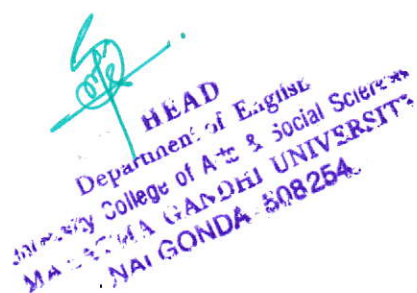 HEAD
Department of English
University College of Arts & Social Sciences
MAHATMA GANDHI UNIVERSITY
NALGONDA-508254.